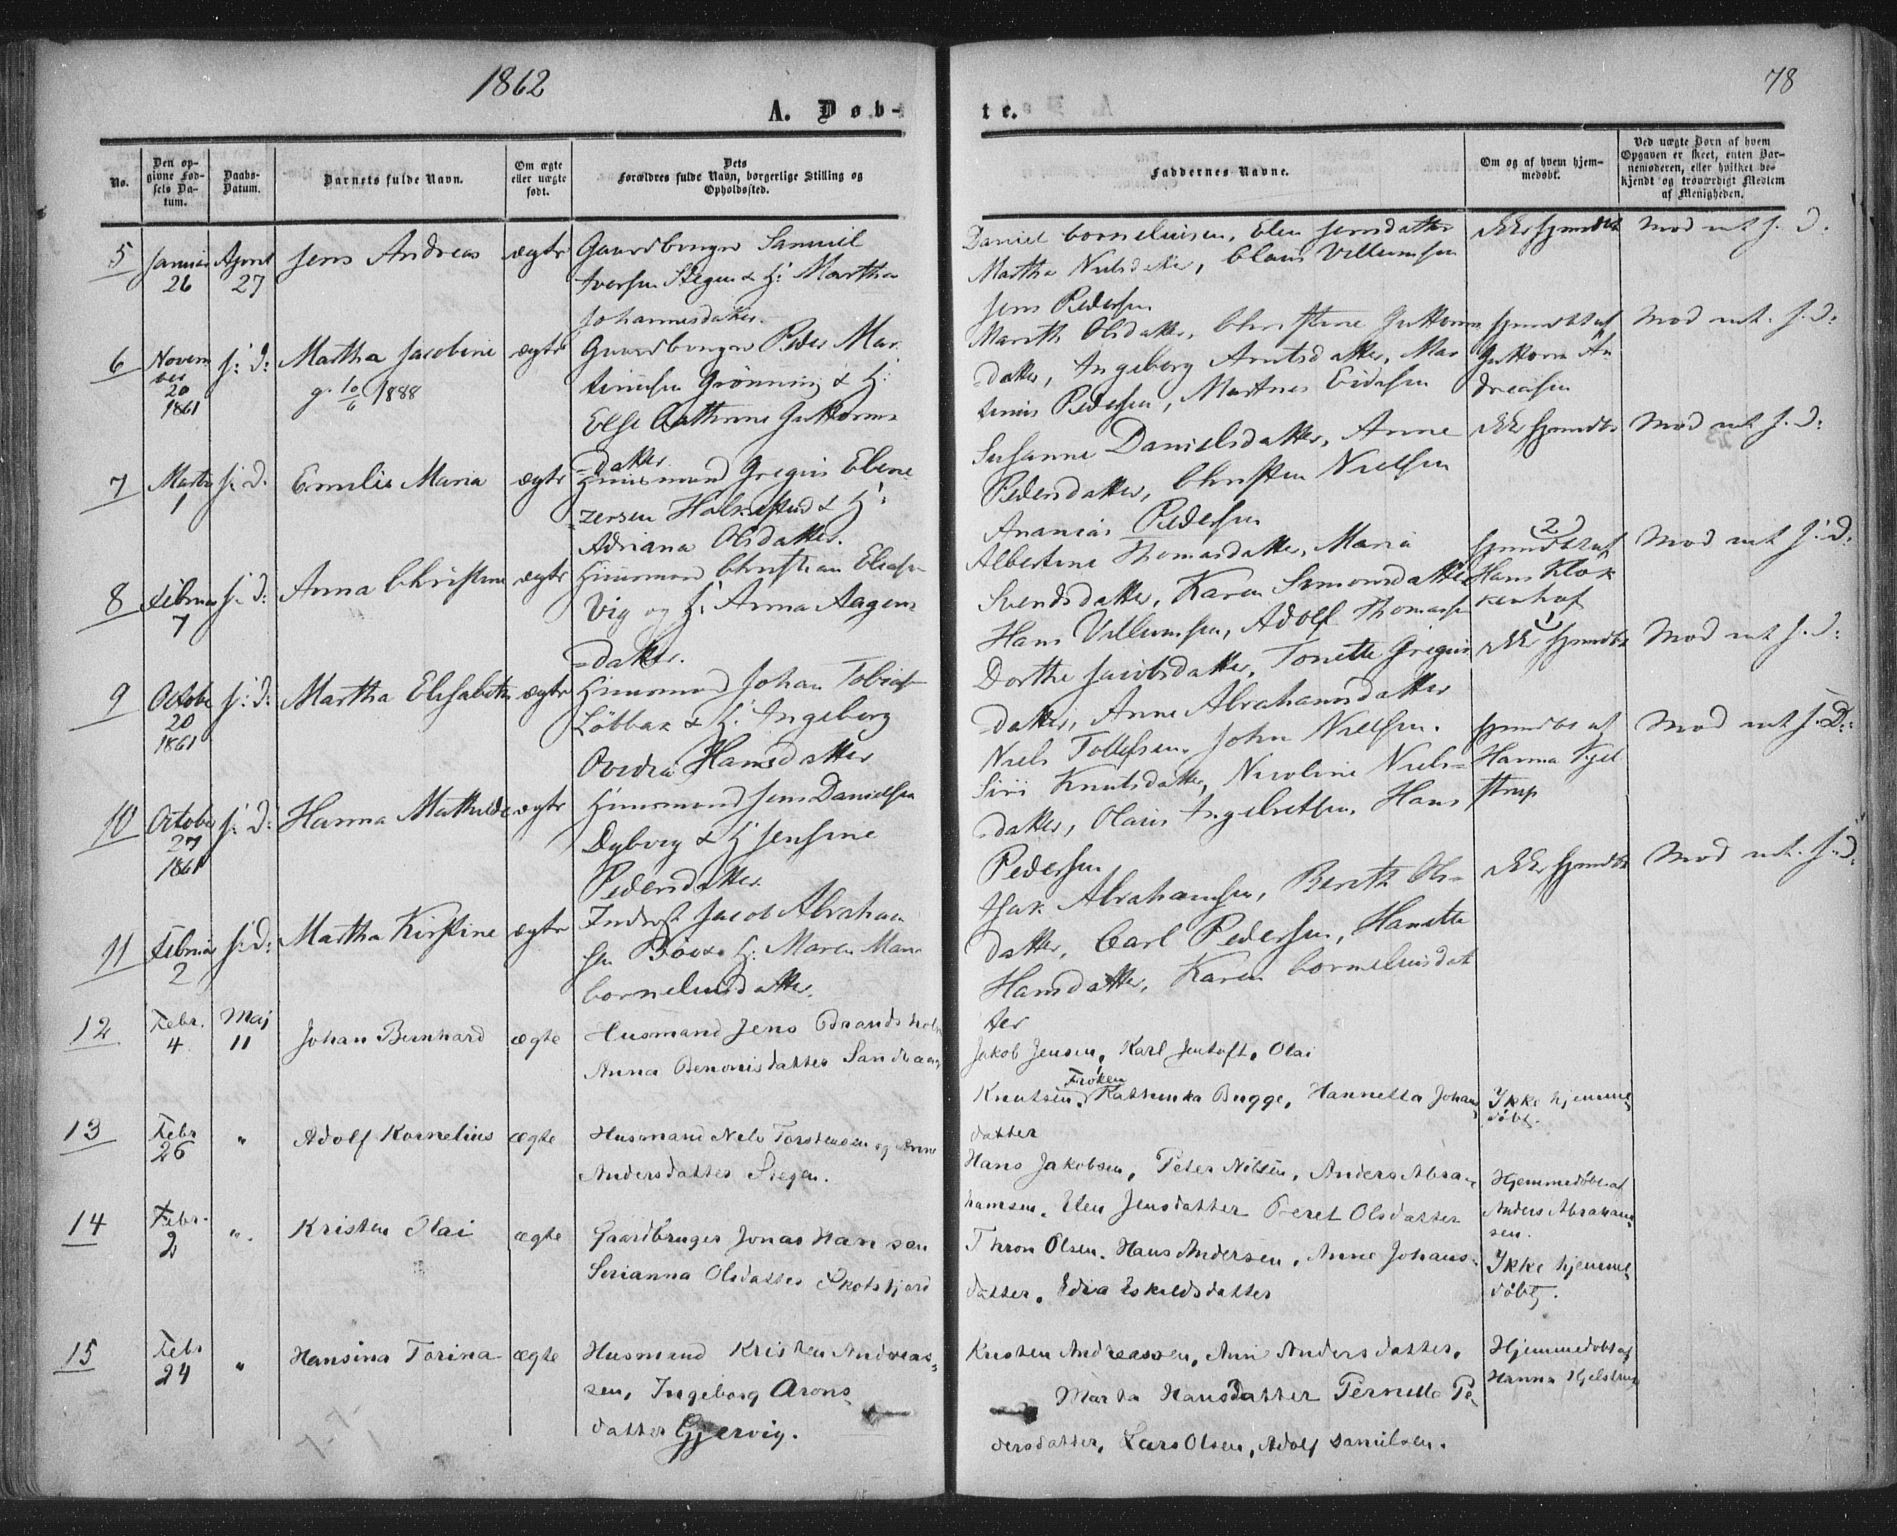 1862
78
A. Døb-
te.
No.
Den op-
givne Fød-
sels Da-
tum.
Daabs-
Datum.
Barnets fulde Navn.
Om ægte
eller uægte
født.
Dets
Forældres fulde Navn, borgerlige Stilling og
Opholdssted.
Faddernes Navne.
Om og af hvem hjem-
medøbt.
Ved uægte Børn af hvem
Opgaven er skeet, enten Bar-
nemoderen, eller hvilket be-
kjendt og troværdigt Medlem
af Menigheden.
5
Januar
26
April
27
Jens Andreas
ægte
Gaardbruger Samuel
Iversen Stegen & H: Martha
Johannesdatter.
Daniel Corneliusen, Elen Jensdatter
Martha Nielsdatter, Claus Villumsen
Jens Pedersen
Ikke hjemdbt
6
Novem
ber
20
1861
s: D:
Martha Jacobine
g. 10/6 1888
ægte
Gaardbruger Peder Mar
tinusen Grønning & H:
Else Cathrine Guttorms
=datter
Mareth Olsdatter, Christine Guttorms
=datter, Ingeborg Arntsdatter, Mar
tinus Pedersen, Martines Eidisen
hjemdbt af
Guttorm An
dreasen
7
Marts
1
s: D.
Emilie Maria
ægte
Huusmand Gregus Ebene
zersen Holmstad & H:
Adriana Olsdatter.
Susanne Danielsdatter, Anne
Pedersdatter, Christen Nielsen
Ananias Pedersen
Ikke hjemdbt
8
Februar
7
s: D:
Anna Christine
ægte
Huusmand Christian Eliasen
Vig og H: Anna Aagens
=datter.
Albertine Thomasdatter, Maria
Svendsdatter, Karen Simonsdatter
Hans Villumsen, Adolf Thomasen
2)
hjemdbt af
Hans Klok
kerhof
9
October
20
1861
s: D:
Martha Elisabeth
ægte
Huusmand Johan Tobias
Løbbak & H. Ingeborg
Ovedia Hansdatter
Dorthe Jacobsdatter, Tonette Gregus
datter, Anne Abrahamsdatter
Niels Tollefsen, John Nielsen.
1)
Ikke hjemdbt
10
October
27
1861
s: D:
Hanna Mathilde
ægte
Huusmand Jens Danielsen
Dybvig & H Jensine
Pedersdatter
Siri Knutsdatter, Nicoline Niels=
datter, Olaus Ingebretsen, Hans
Pedersen
hjemdbt af
Hanna Kjel
strup
11
Februar
2
s: D:
Martha Kirstine
ægte
Inderst Jacob Abraham
sen Bøe & H: Maren Maria
Corneliusdatter.
Isak Abrahamsen, Bereth Ols=
datter, Carl Pedersen, Hanette
Hansdatter, Karen Corneliusdat
ter
Ikke hjemdbt
12
Febr.
4
Maj
11
Johan Bernhard
ægte
Husmand Jens
Anna Benonisdatter
Jakob Jensen, Karl Jentoft, Olai
Frøken
Knutsen, Kathinka Bugge, Hannetta Johans
datter
Ikke hjemme
døbt.
13
Febr
26
"
Adolf Kornelius
ægte
Husmand Nils Torstensen og Anne
Andersdatter Stegen.
Hans Jakobsen, Peter Nilsen, Anders Abra=
hamsen, Elen Jensdatter Beret Olsdatter
Hjemmedøbt af
Anders Abraham
sen.
14
Febr.
2
".
Kristen Olai
ægte
Gaardbruger Jonas Hansen
Serianna Olsdatter Skotsfjord
Thron Olsen, Hans Andersen, Anne Johans-
datter, Edia Eskildsdatter
Ikke hjemme
døbt.
15
Febr
24
"
Hansina Torina
ægte
Husmand Kristen Andreas=
sen, Ingeborg Arons
datter Gjervig.
Kristen Andreassen, Ane Andersdatter,
Marta Hansdatter Pernille Pe-
dersdatter, Lars Olsen, Adolf Danielsen.
Hjemmedøbt af
Hanna Kjelstrup